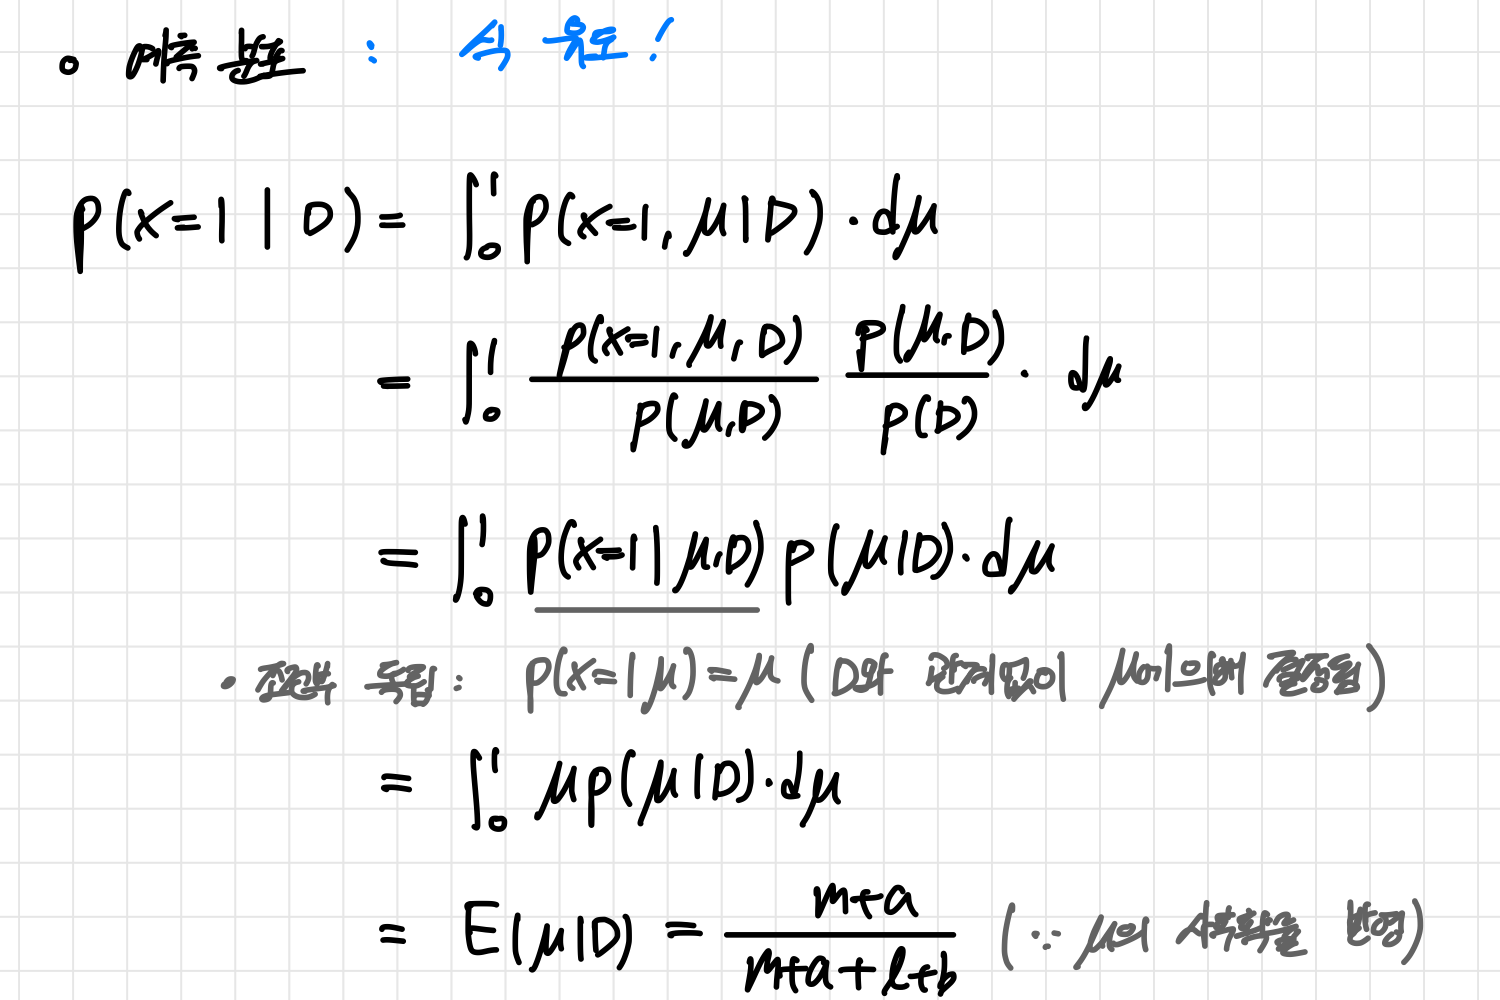 • 예측 분포 : 식 유도!
p(x=1 | D) = ∫₀¹ p(x=1, μ|D) · dμ
= ∫₀¹ p(x=1, μ, D) / p(μ, D) p(μ, D) / p(D) · dμ
= ∫₀¹ p(x=1 | μ, D) p(μ|D) · dμ
• 조건부 독립 : p(x=1|μ) = μ (D와 관계없이 μ에 의해 결정됨)
= ∫₀¹ μp(μ|D) · dμ
= E(μ|D) = m+a / m+a+l+b (∵ μ의 사후확률 반영)